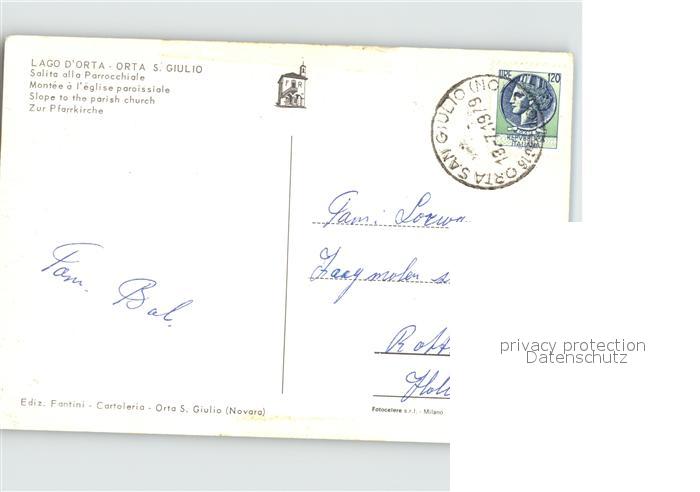 LAGO D'ORTA - ORTA S. GIULIO
Salita alla Parrocchiale
Montée à l'église paroissiale
Slope to the parish church
Zur Pfarrkirche
F R
LIRE 120
REPUBBLICA
ITALIANA
ORTA SAN GIULIO (NO
13-7-1979
Fam.
Zaagmolen s
Rott
Hol
Fam. Bal.
privacy protection
Datenschutz
Ediz. Fantini - Cartoleria - Orta S. Giulio (Novara)
Fotocelere s.r.l. - Milano